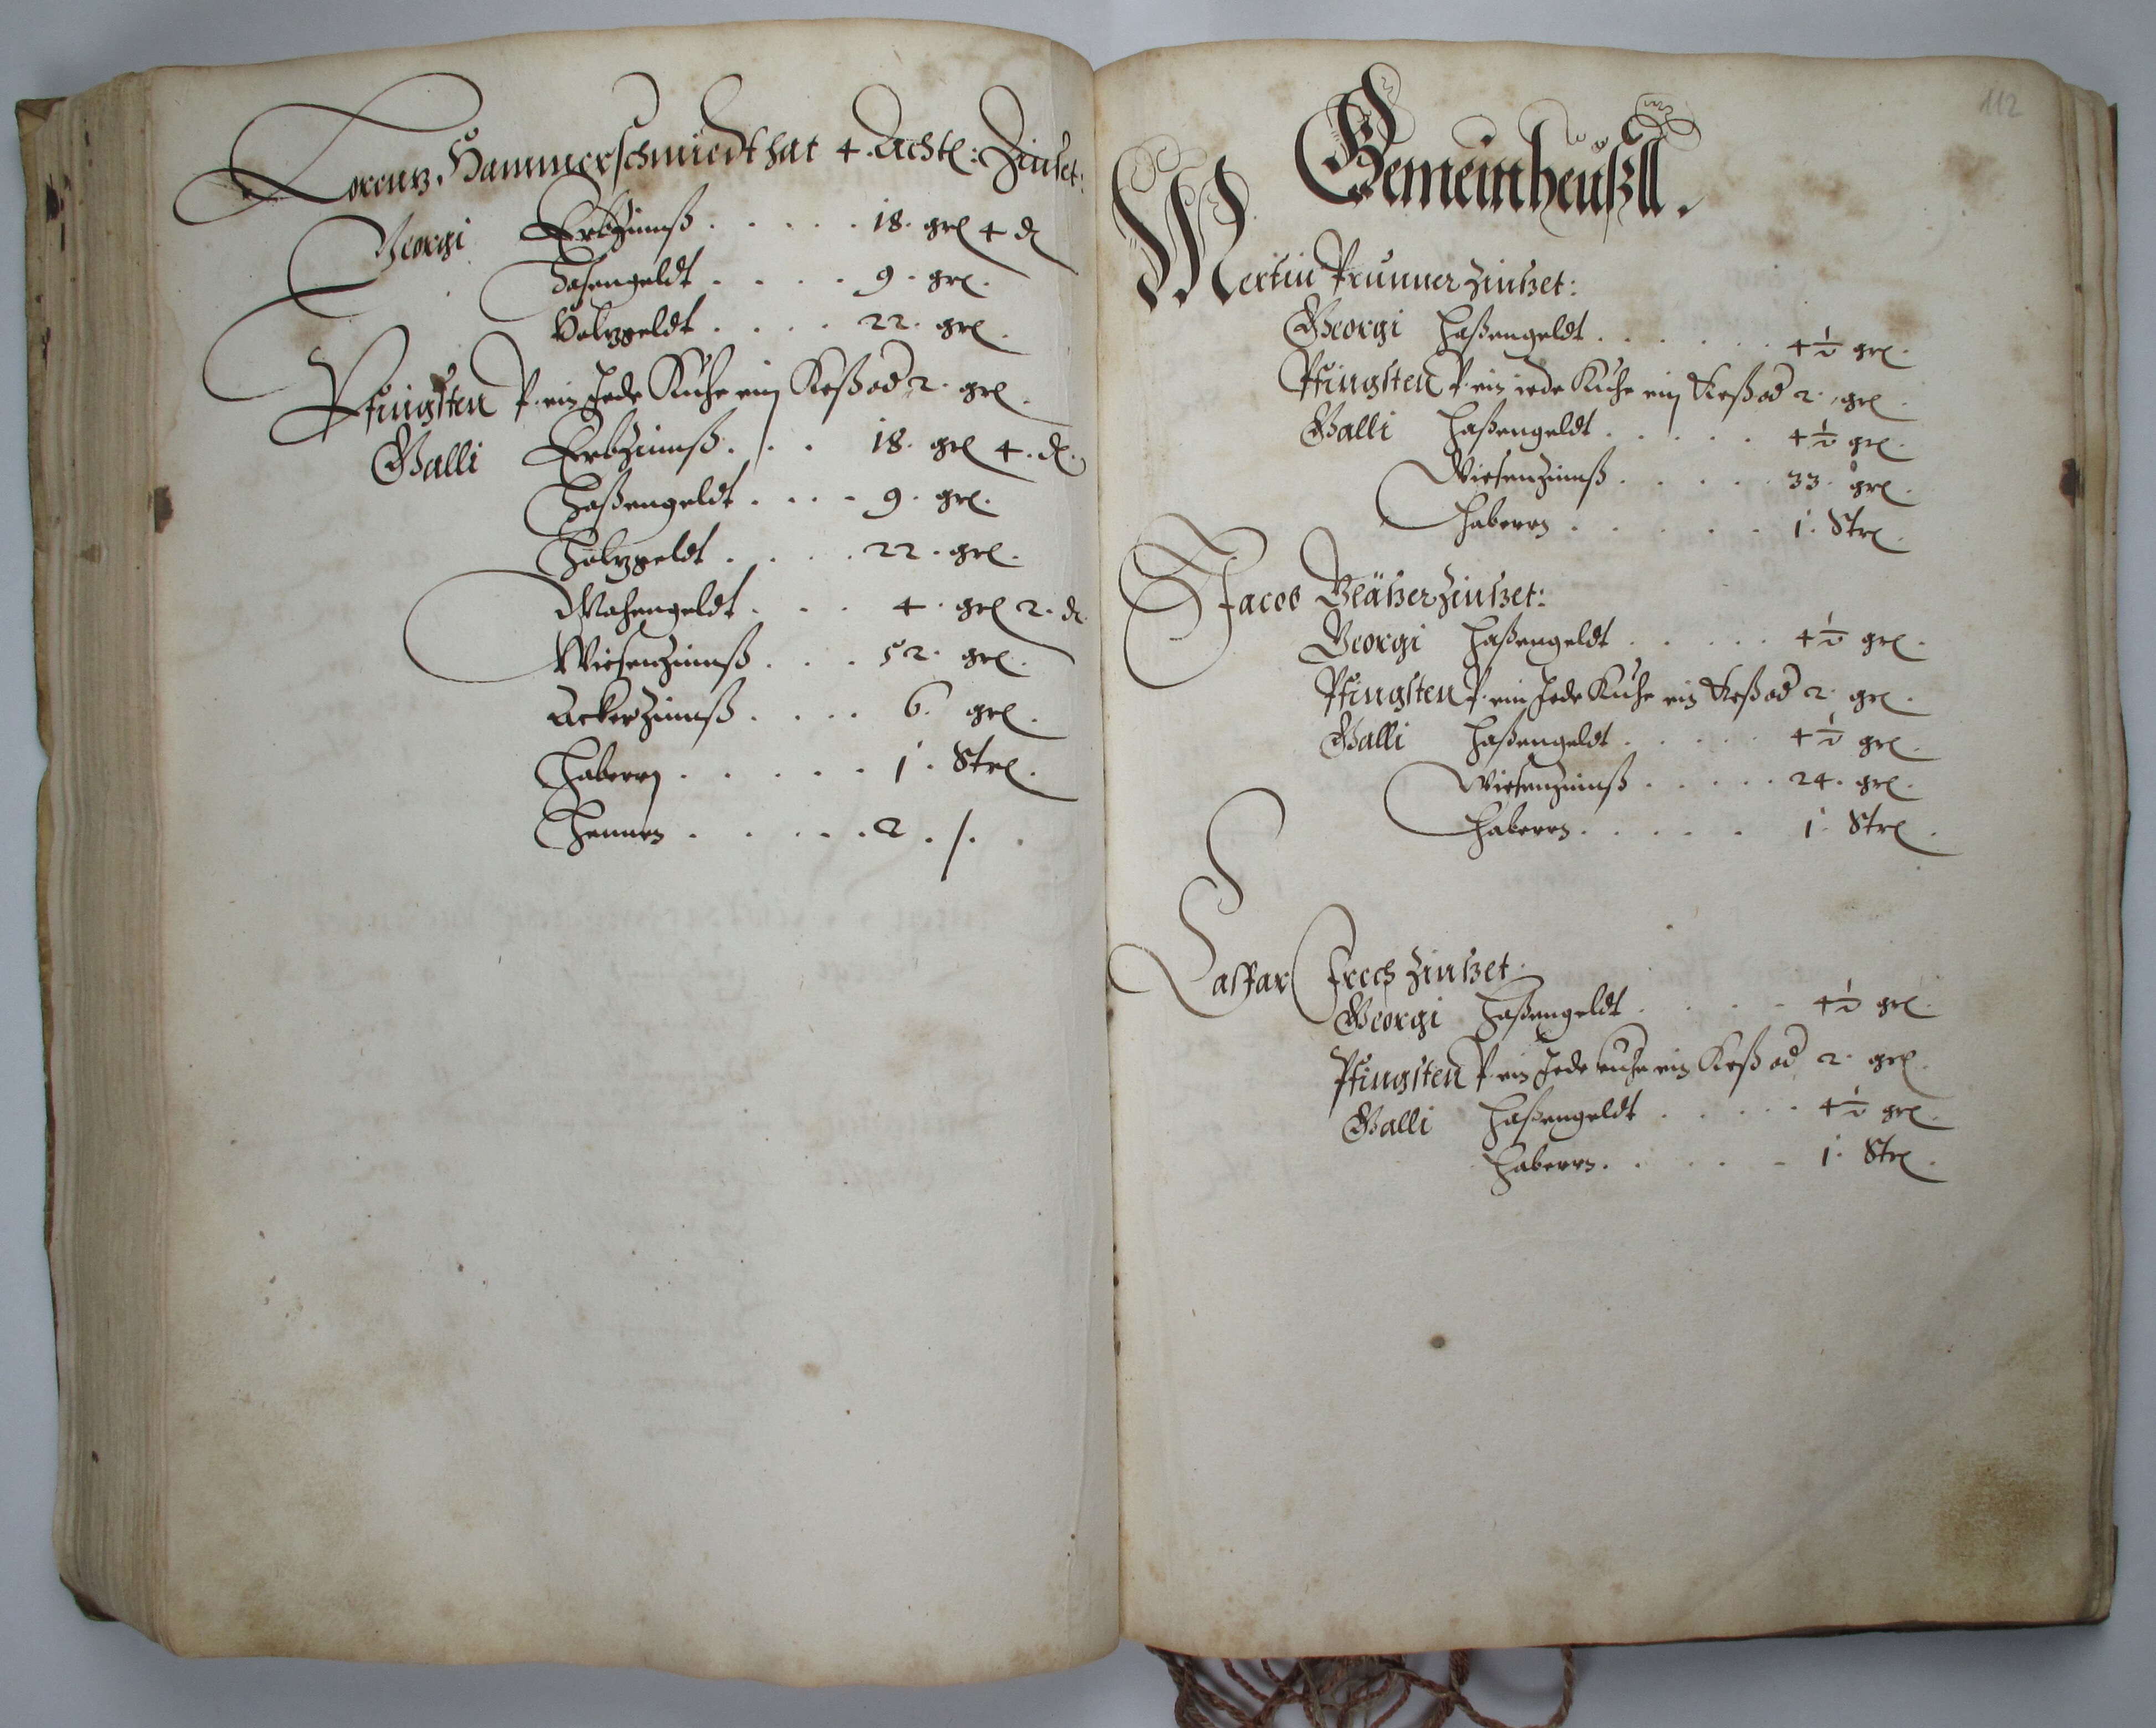 Lorenz Hammerschmiedt hat 4. Achtl: Zinset:
Georgi Erbzinnß . . . . . 18. grl 4 d
Hasengeldt . . . . 9. grl.
Holzgeldt . . . . 22. grl.
Pfingsten P. ein Jede Kuhe ein Keß od 2. grl.
Galli Erbzinnß . . . 18. grl 4. d.
Haßengeldt . . . . 9. grl.
Holzgeldt . . . . 22. grl.
Mahengeldt . . . 4. grl 2. d.
Wiesenzinnß . . . 52. grl.
Ackerzinnß . . . . 6. grl.
Habern . . . . . 1. Strl.
Hennen . . . . . 2 . /.
112
Gemeinheußll.
Mertin Prunner Zinßet:
Georgi Haßengeldt . . . . . . 4½ grl.
Pfingsten P. ein iede Kuhe ein Keß od 2. grl.
Galli Haßengeldt . . . . . 4½ grl.
Wiesenzinnß . . . . . 33. grl.
Habern . . . . . . 1. Strl.
Jacob Gläßer Zinßet:
Georgi Haßengeldt . . . . . 4½ grl.
Pfingsten P. ein Jede Kuhe ein Keß od 2. grl.
Galli Haßengeldt . . . . . 4½ grl.
Wiesenzinnß . . . . . 24. grl.
Habern . . . . . 1. Strl.
Caspar Frech Zinßet.
Georgi Haßengeldt . . . . 4½ grl.
Pfingsten P. ein Jede kuhe ein Keß od 2. grl.
Galli Haßengeldt . . . . . 4½ grl.
Habern . . . . . 1. Strl.